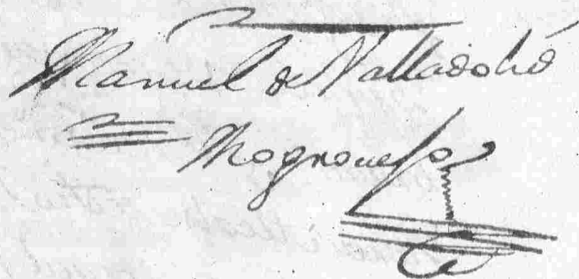 Manuel de Valladolid
Mogrovejo